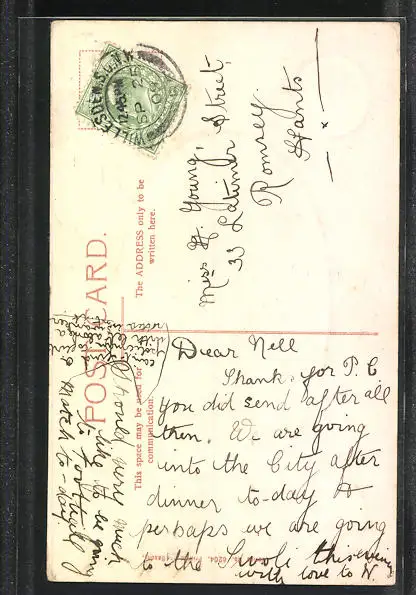 POST CARD.
The ADDRESS only to be
written here.
This space may be used for
communication.
WILLESDEN S.O. N.W.
12.45 PM
SP 25
Miss H. Young,
33 Latimer Street,
Romsey.
Hants
Dear Nell
Thanks for P.C
you did send after all
then. We are going
into the City after
dinner to-day &
perhaps we are going
to the Tivoli this evening
with love to N.
Should very much
like to be going
to Football
Match to-day